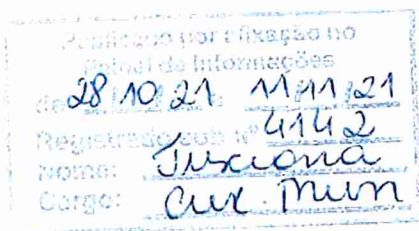 Publicado por afixação no
Painel de Informações
de 28 10 21 11/11/21
Registrado sob nº 4142
Nome:
Cargo: Aux. Mun